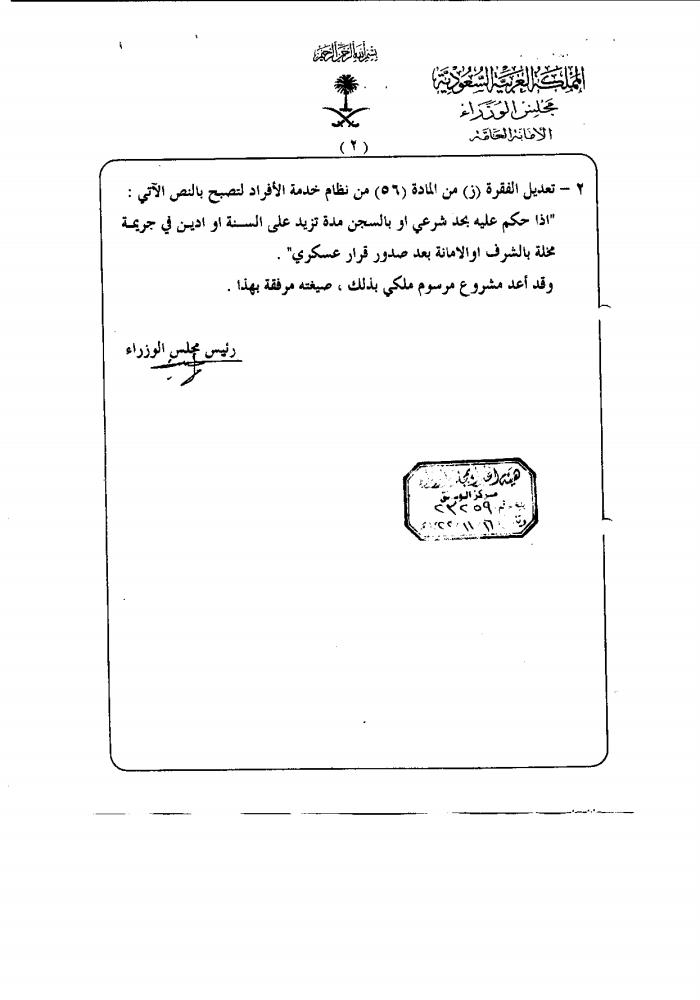 بسم الله الرحمن الرحيم
المملكة العربية السعودية
مجلس الوزراء
الأمانة العامة
( ٢ )
٢ – تعديل الفقرة (ز) من المادة (٥٦) من نظام خدمة الأفراد لتصبح بالنص الآتي :
"اذا حكم عليه بحد شرعي او بالسجن مدة تزيد على السنة او ادين في جريمة
مخلة بالشرف اوالامانة بعد صدور قرار عسكري" .
وقد أعد مشروع مرسوم ملكي بذلك ، صيغته مرفقة بهذا .
رئيس مجلس الوزراء
هيئة
مركز
٢٣٢٥٩